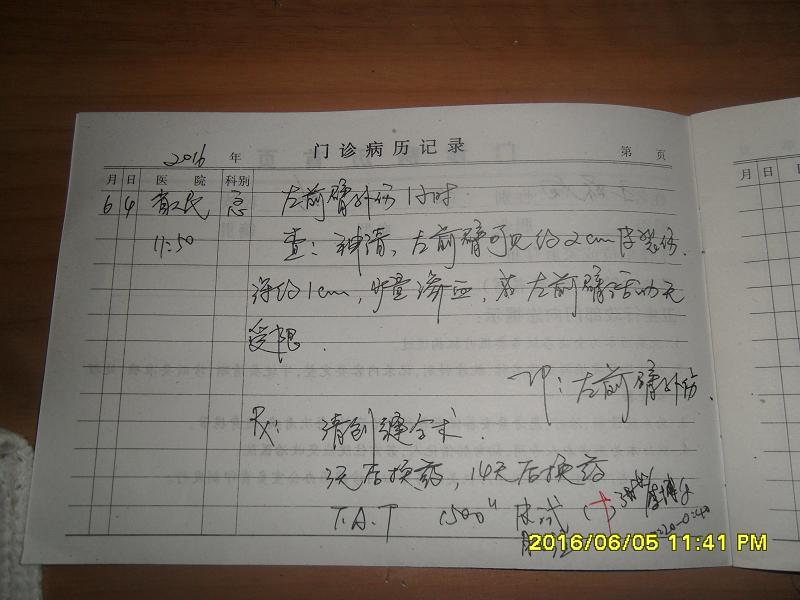 门诊病历记录
2016 年 第 页
月 日 医 院 科别
6 4 民 急 左前臂外伤1小时
11:50 查:神清,左前臂可见约2cm皮裂伤,
深约1cm,少量渗血,左前臂活动无
受限.
左前臂外伤.
Rx: 清创缝合术.
3天后换药,14天后换药
T.A.T 1500u 皮试 (+)
月 日
2016/06/05 11:41 PM